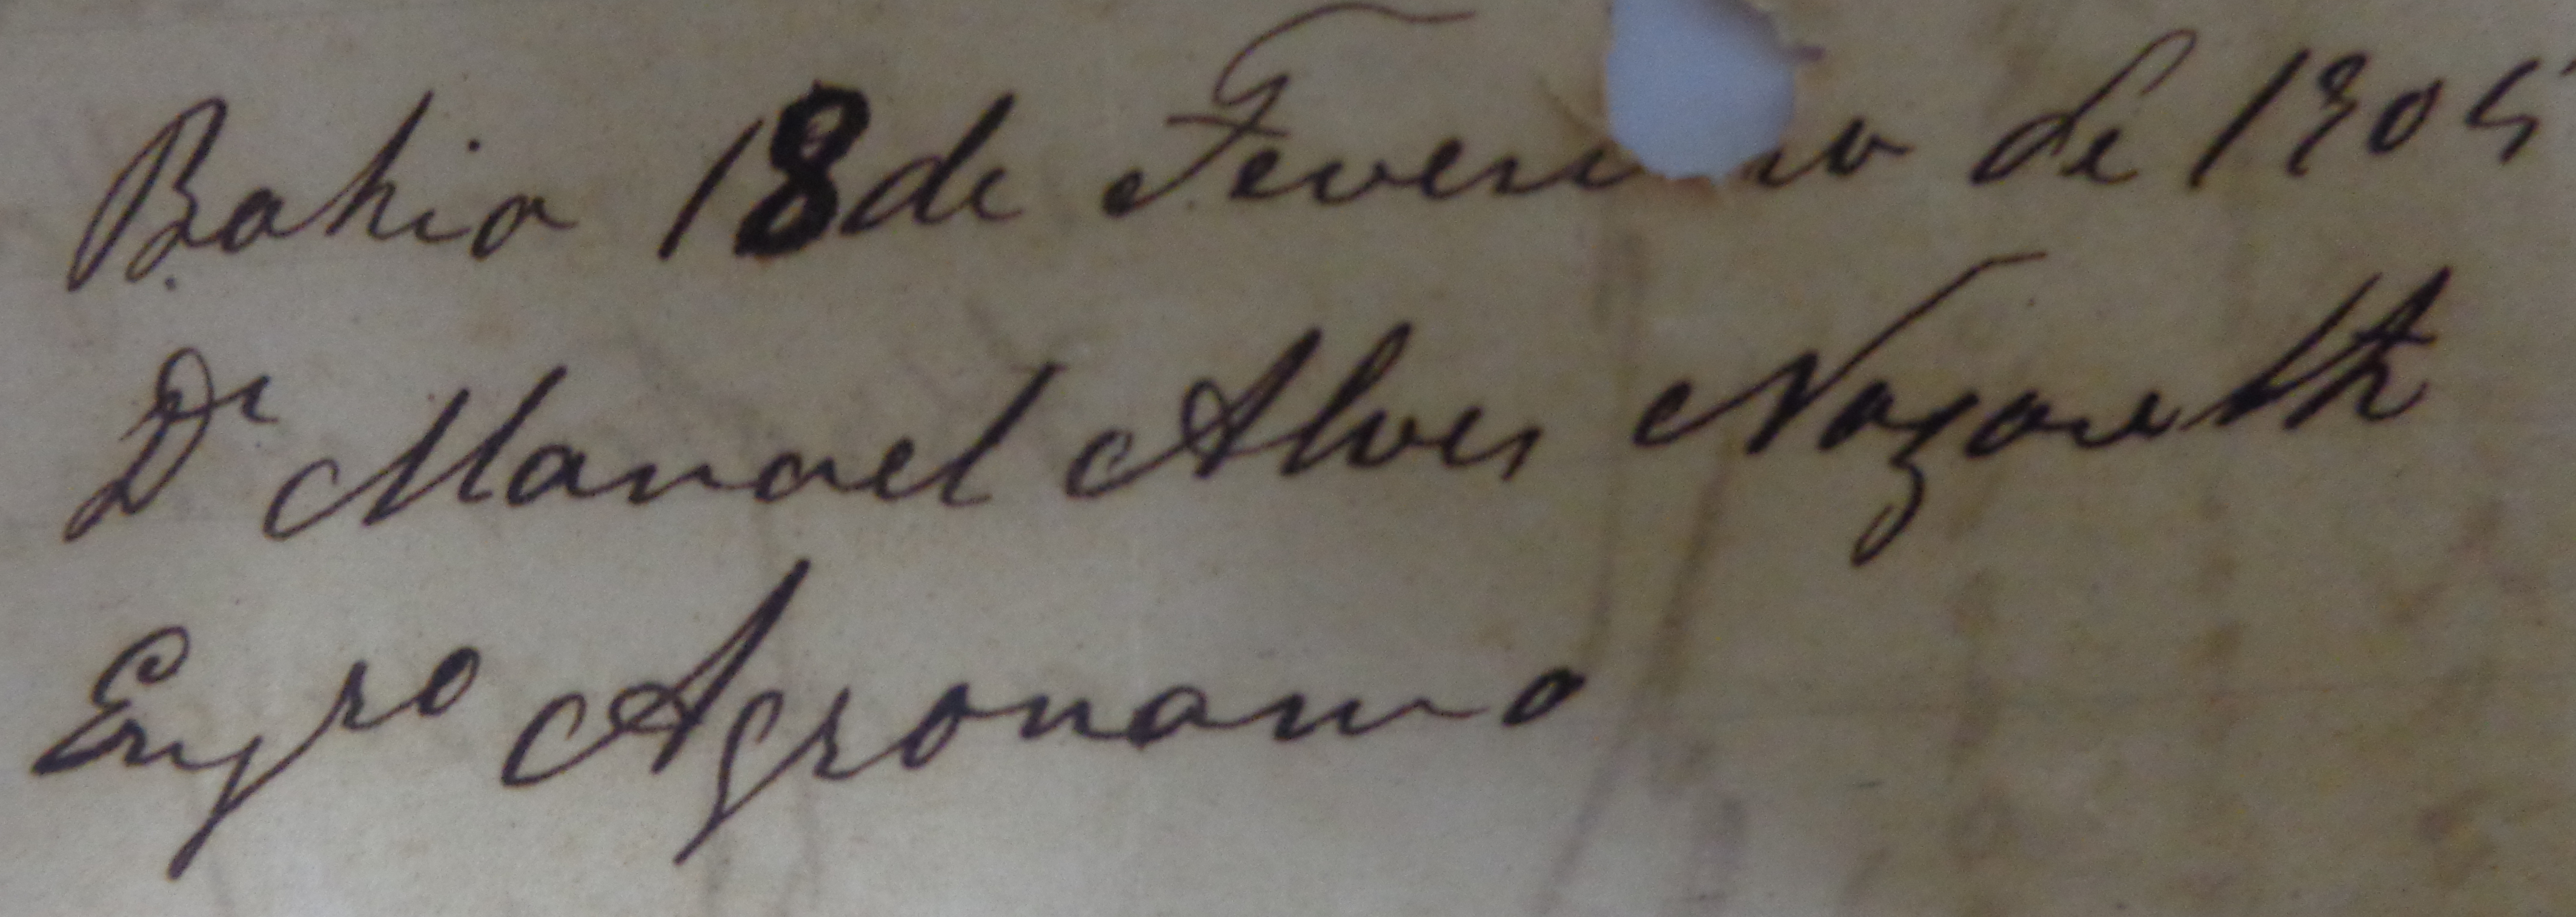 Bahia 18 de Fevereiro de 1905
Dr Manoel Alves Nazareth
Engro Agronomo